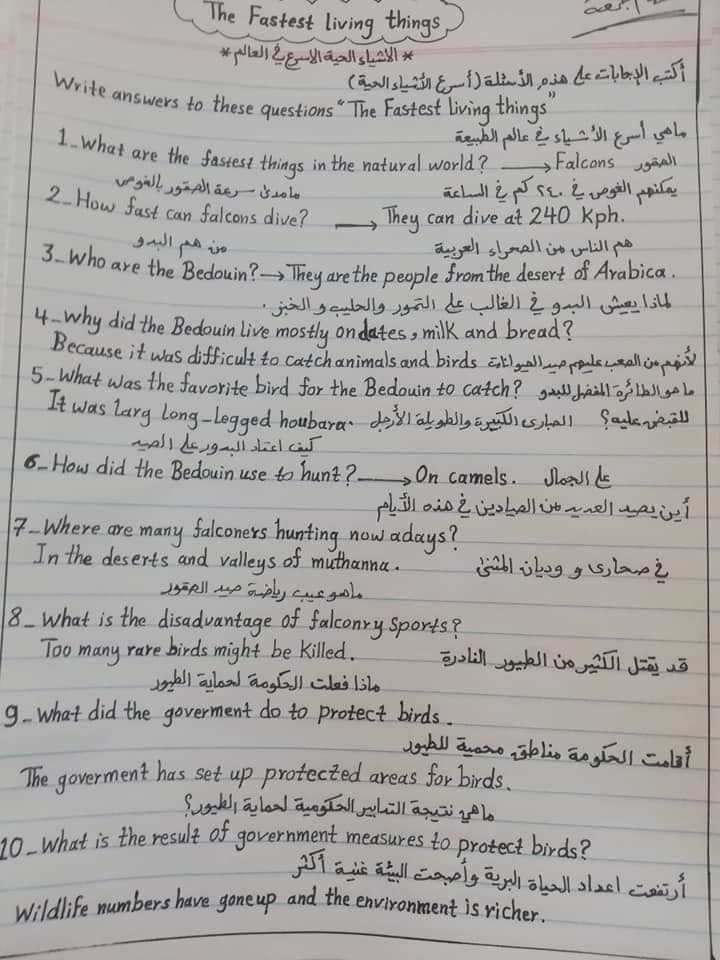 The Fastest Living things
* الاشياء الحية الاسرع في العالم *
أكتب الإجابات على هذه الأسئلة (أسرع الأشياء الحية)
Write answers to these questions "The Fastest living things"
ماهي أسرع الأشياء في عالم الطبيعة
1_What are the fastest things in the natural world? → Falcons الصقور
مامدى سرعة الصقور بالغوص يمكنهم الغوص في ٢٤٠ كم في الساعة
2_How fast can falcons dive? → They can dive at 240 Kph.
من هم البدو هم الناس من الصحراء العربية
3_Who are the Bedouin? → They are the people from the desert of Arabica.
لماذا يعيش البدو في الغالب على التمور والحليب و الخبز.
4_Why did the Bedouin live mostly on dates, milk and bread?
Because it was difficult to catch animals and birds لأنهم من الصعب عليهم صيد الحيوانات
5_What was the favorite bird for the Bedouin to catch? ما هو الطائرة المفضل للبدو
It was larg long-legged houbara. الحبارى الكبيرة والطويلة الأرجل للقبض عليه؟
كيف اعتاد البدور على الصيد
6_How did the Bedouin use to hunt? → On camels. على الجمال
أين يصيد العديد من الصيادين في هذه الأيام
7_Where are many falconers hunting now adays?
In the deserts and valleys of muthanna. في صحارى و وديان المثنى
ماهو عيب رياضة صيد الصقور
8_What is the disadvantage of falconry sports?
Too many rare birds might be Killed. قد يقتل الكثير من الطيور النادرة
ماذا فعلت الحكومة لحماية الطيور
9_What did the goverment do to protect birds.
أقامت الحكومة مناطق محمية للطيور
The goverment has set up protected areas for birds.
ماهي نتيجة التدابير الحكومية لحماية الطيور؟
10_What is the result of government measures to protect birds?
أرتفعت اعداد الحياة البرية وأصبحت البيئة غنية أكثر
Wildlife numbers have gone up and the environment is richer.